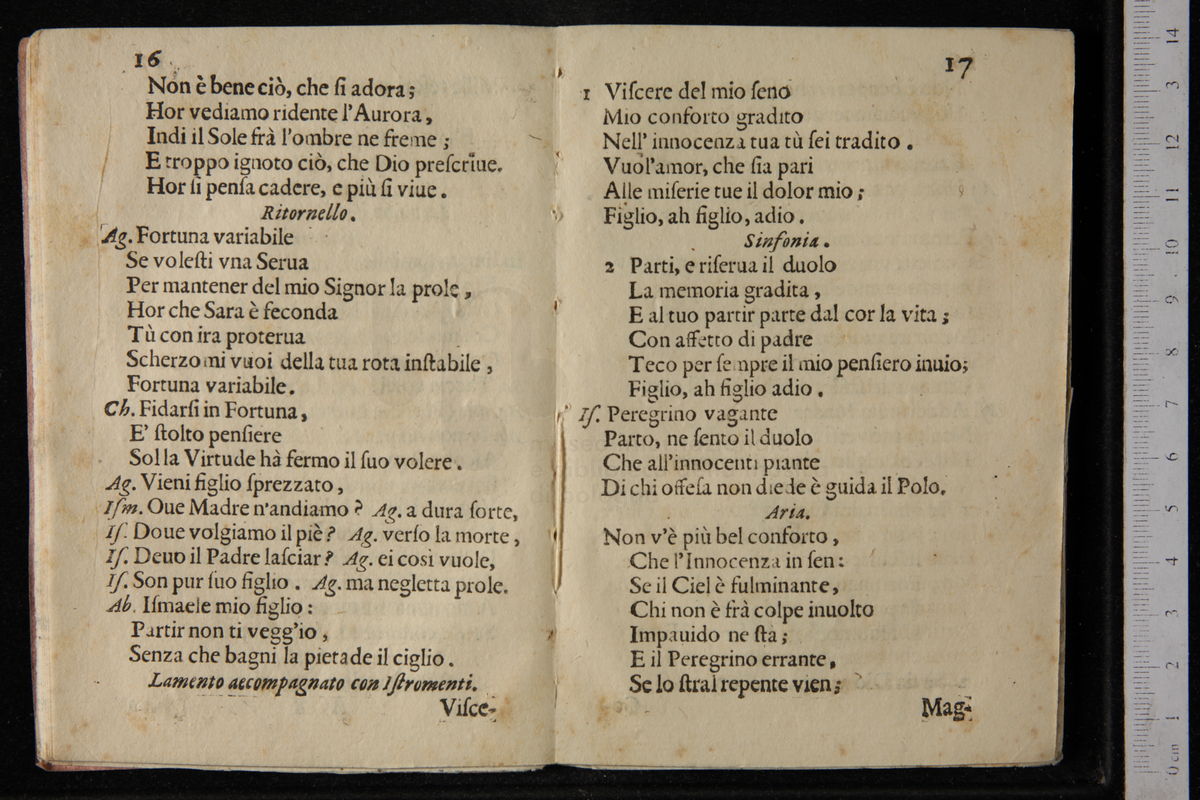 16
Non è bene ciò, che ſi adora;
Hor vediamo ridente l'Aurora,
Indi il Sole frà l'ombre ne freme ;
E troppo ignoto ciò, che Dio preſcriue.
Hor ſi penſa cadere, e più ſi viue.
Ritornello.
Ag. Fortuna variabile
Se voleſti vna Serua
Per mantener del mio Signor la prole,
Hor che Sara è feconda
Tù con ira proterua
Scherzo mi vuoi della tua rota inſtabile,
Fortuna variabile.
Ch. Fidarſi in Fortuna,
E' ſtolto penſiere
Sol la Virtude hà fermo il ſuo volere.
Ag. Vieni figlio ſprezzato,
Iſm. Oue Madre n'andiamo ? Ag. a dura ſorte,
Iſ. Doue volgiamo il piè ? Ag. verſo la morte,
Iſ. Deuo il Padre laſciar ? Ag. ei così vuole,
Iſ. Son pur ſuo figlio. Ag. ma negletta prole.
Ab. Iſmaele mio figlio :
Partir non ti vegg'io,
Senza che bagni la pietade il ciglio.
Lamento accompagnato con Iſtromenti.
Viſce-
17
1 Viſcere del mio ſeno
Mio conforto gradito
Nell' innocenza tua tù ſei tradito.
Vuol'amor, che ſia pari
Alle miſerie tue il dolor mio;
Figlio, ah figlio, adio.
Sinfonia.
2 Parti, e riſerua il duolo
La memoria gradita,
E al tuo partir parte dal cor la vita;
Con affetto di padre
Teco per ſempre il mio penſiero inuio;
Figlio, ah figlio adio.
Iſ. Peregrino vagante
Parto, ne ſento il duolo
Che all'innocenti piante
Di chi offeſa non diede è guida il Polo.
Aria.
Non v'è più bel conforto,
Che l'Innocenza in ſen :
Se il Ciel è fulminante,
Chi non è frà colpe inuolto
Impauido ne ſtà;
E il Peregrino errante,
Se lo ſtral repente vien;
Mag-
0 cm 1 2 3 4 5 6 7 8 9 10 11 12 3 14